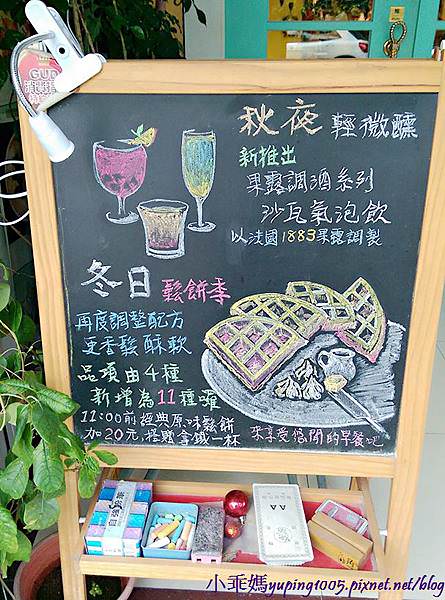 秋夜 輕微醺
新推出
果露調酒系列
沙瓦氣泡飲
以法國1883果露調製
冬日 鬆餅季
再度調整配方
更香鬆酥軟
品項由4種
新增為11種囉
11:00前經典原味鬆餅
加20元,搭贈拿鐵一杯
來享受悠閒的早餐吧
自強
AA
小乖媽yuping1005.pixnet.net/blog